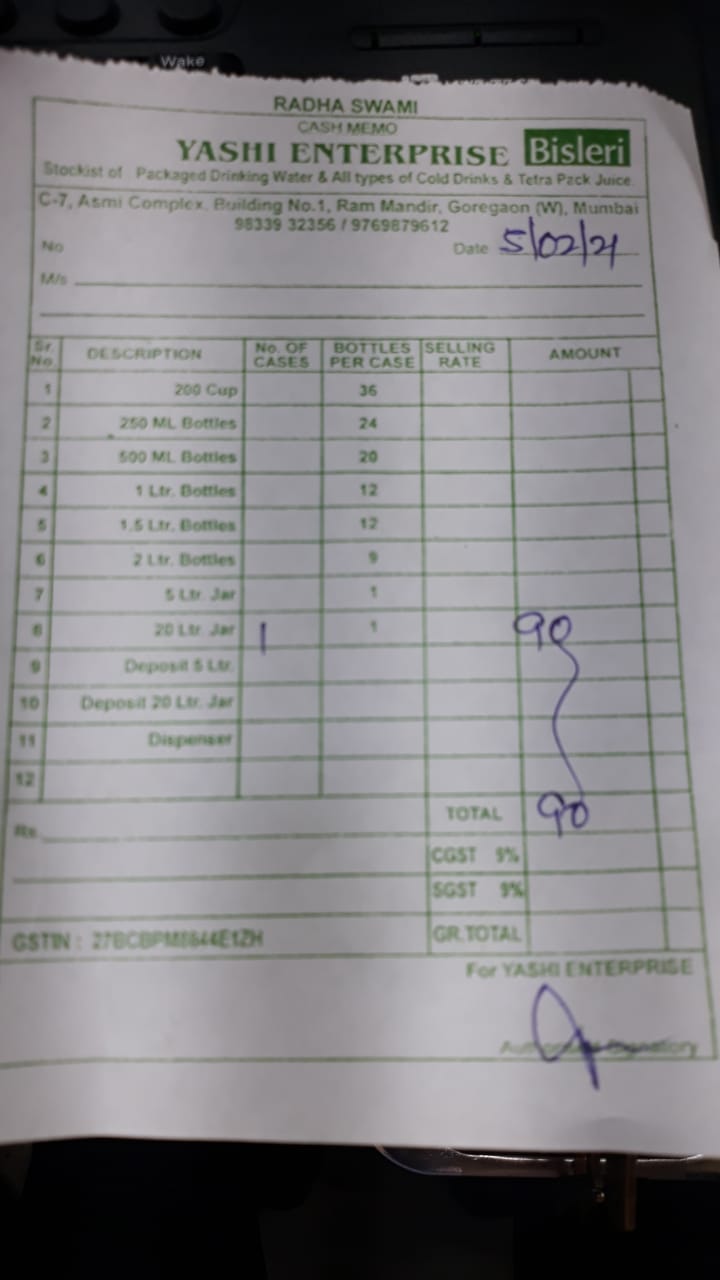 Wake
RADHA SWAMI
CASH MEMO
YASHI ENTERPRISE Bisleri
Stockist of : Packaged Drinking Water & All types of Cold Drinks & Tetra Pack Juice.
C-7, Asmi Complex, Building No.1, Ram Mandir, Goregaon (W), Mumbai
98339 32356 / 9769879612
No Date 5/02/21
M/s
Sr. No. DESCRIPTION No. OF CASES BOTTLES PER CASE SELLING RATE AMOUNT
1 200 Cup 36
2 250 ML Bottles 24
3 500 ML Bottles 20
4 1 Ltr. Bottles 12
5 1.5 Ltr. Bottles 12
6 2 Ltr. Bottles 9
7 5 Ltr. Jar 1
8 20 Ltr. Jar 1 1 90
9 Deposit 5 Ltr.
10 Deposit 20 Ltr. Jar
11 Dispenser
12
TOTAL 90
Rs.
CGST 9%
SGST 9%
GSTIN : 27BCBPM8644E1ZH GR.TOTAL
For YASHI ENTERPRISE
Authorised Signatory